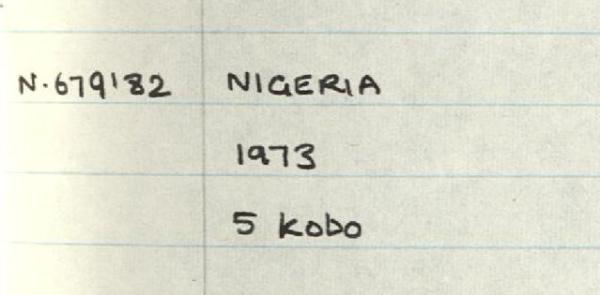 N.679182 NIGERIA
1973
5 Kobo